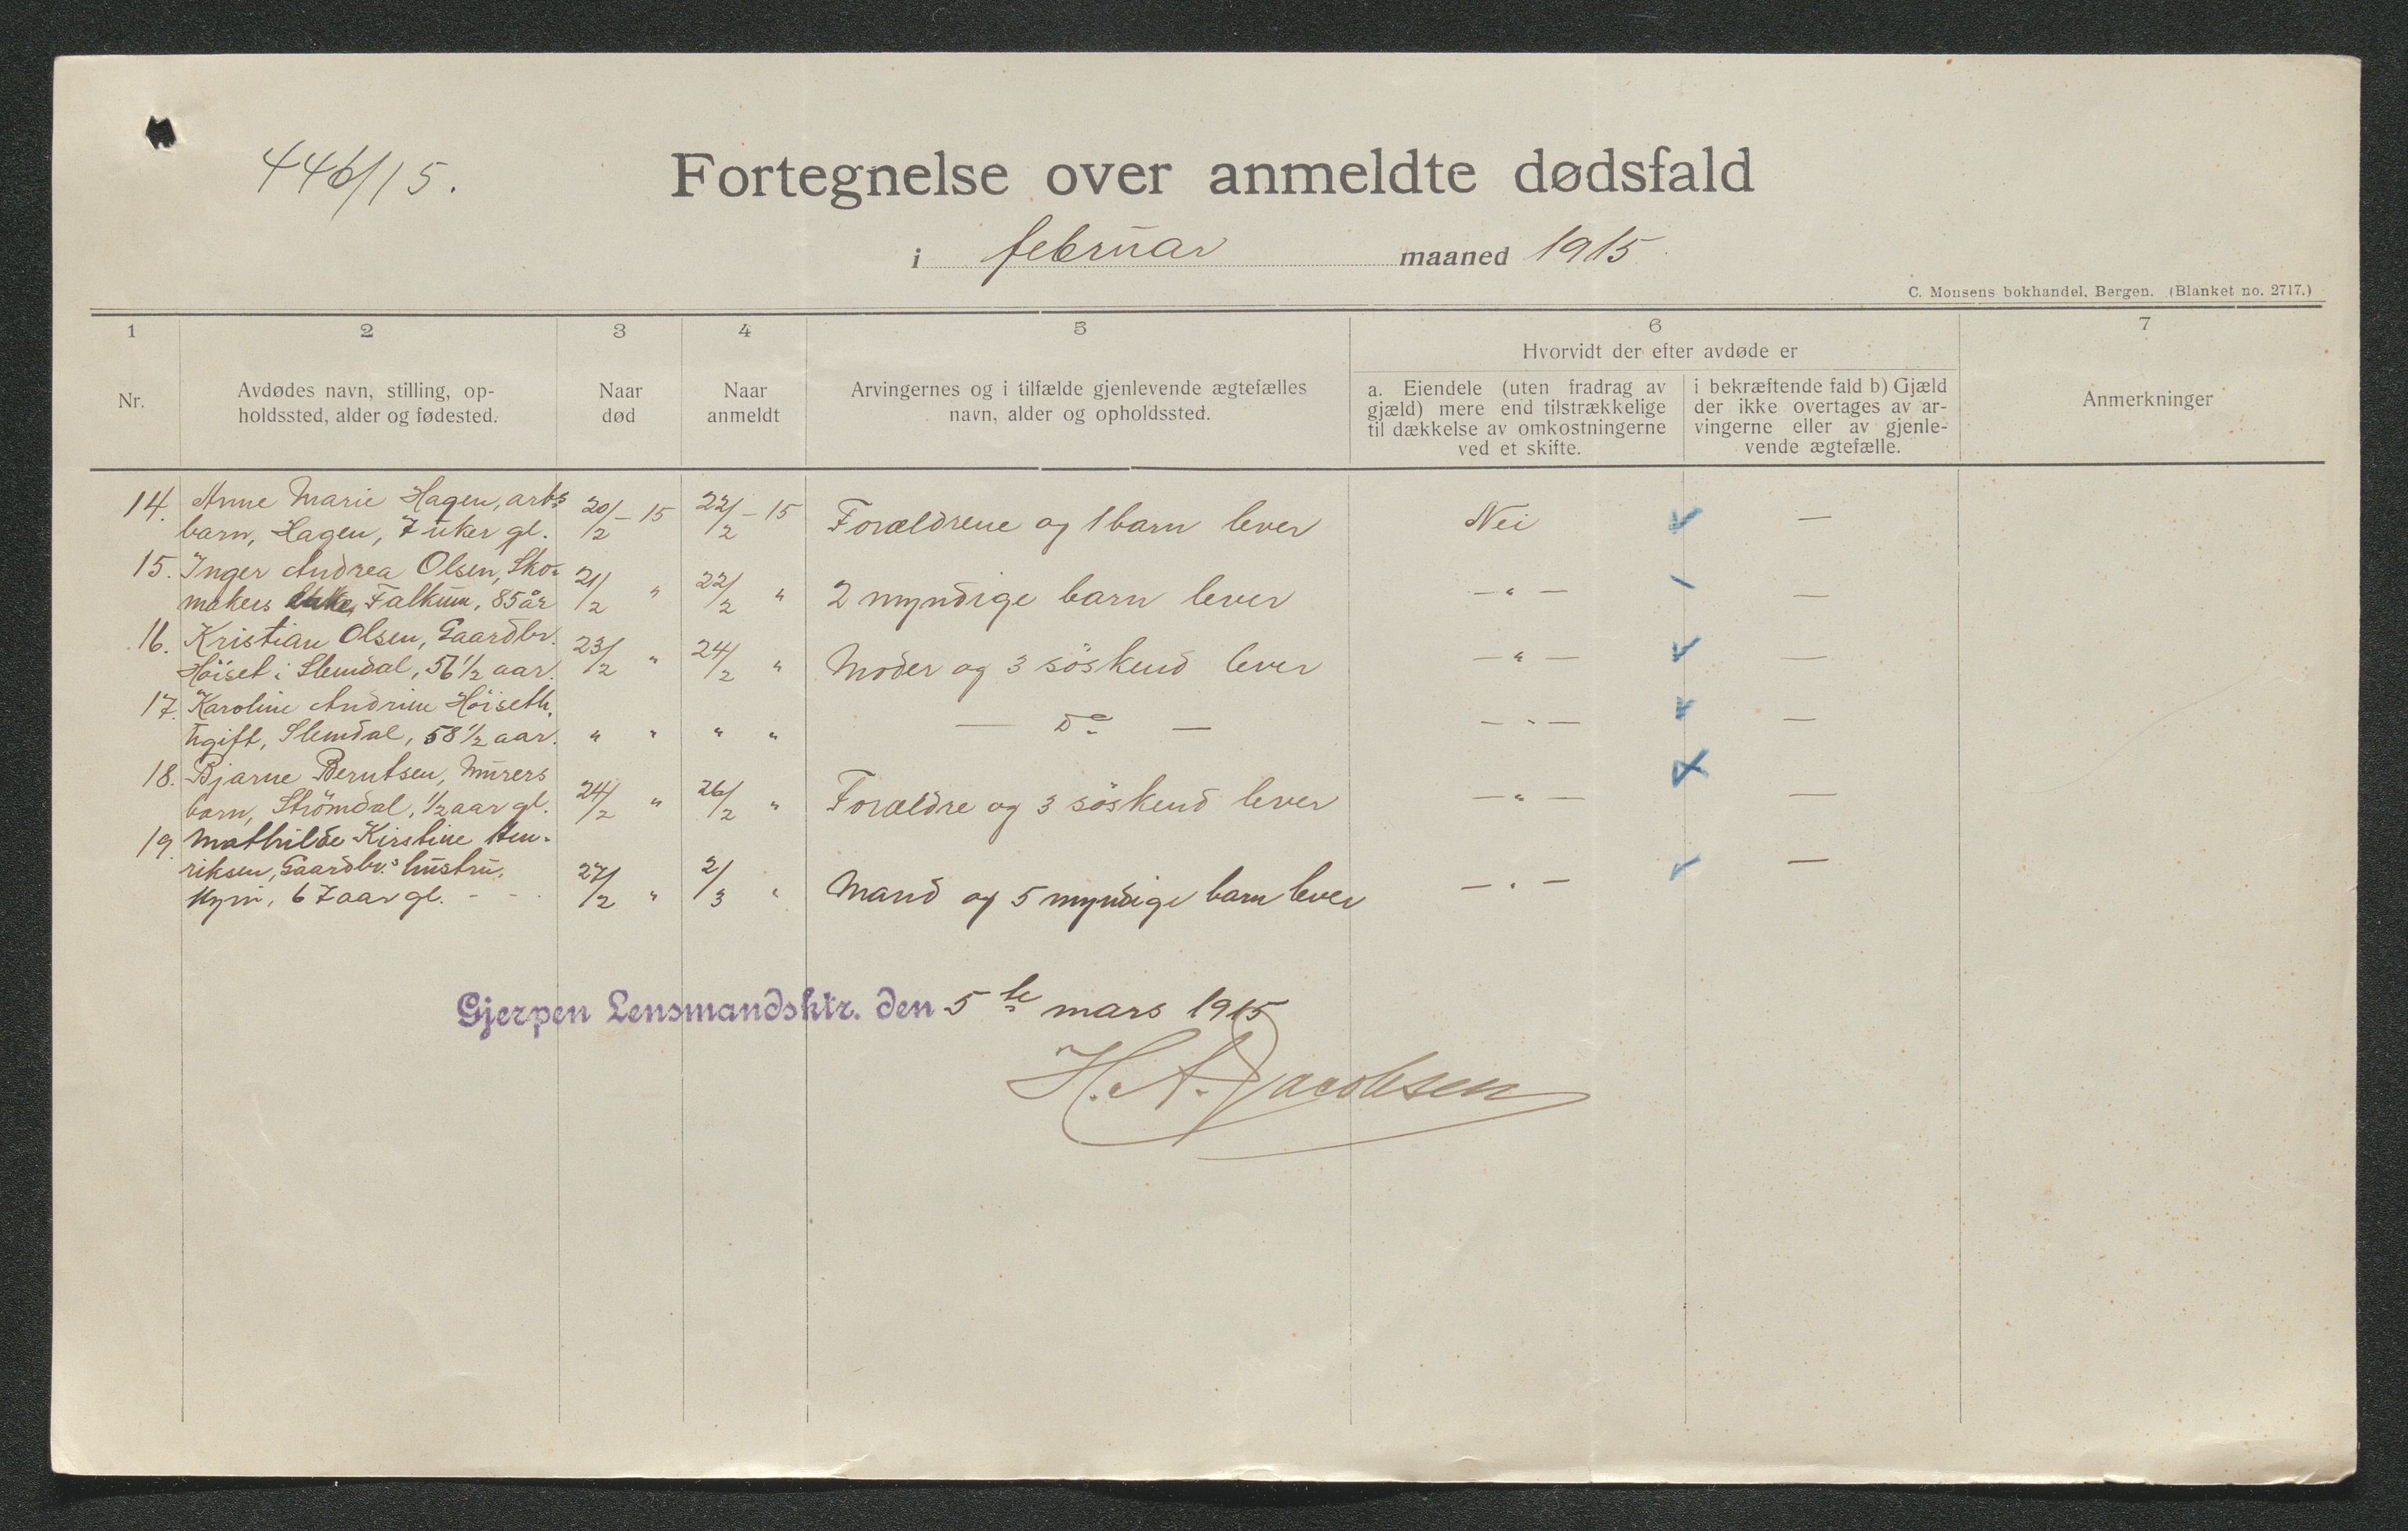 446/15.
Fortegnelse over anmeldte dødsfald
i februar maaned 1915
C. Monsens bokhandel, Bergen. (Blanket no. 2717.)
1 2 3 4 5 6 7
Hvorvidt der efter avdøde er
Nr.
Avdødes navn, stilling, op-
holdssted, alder og fødested.
Naar
død
Naar
anmeldt
Arvingernes og i tilfælde gjenlevende ægtefælles
navn, alder og opholdssted.
a. Eiendele (uten fradrag av
gjæld) mere end tilstrækkelige
til dækkelse av omkostningerne
ved et skifte.
i bekræftende fald b) Gjæld
der ikke overtages av ar-
vingerne eller av gjenle-
vende ægtefælle.
Anmerkninger
14. Anne Marie Hagen, arbs
barn, Hagen, 7 uker gl. 20/2 - 15 22/2 - 15 Forældrene og 1 barn lever Nei —
15. Inger Andrea Olsen, Sko-
makers Enke, Falkum, 85 år 21/2 " 22/2 " 2 myndige barn lever — " — —
16. Kristian Olsen, Gaardbr.
Höiset i Slemdal, 56 1/2 aar. 23/2 " 24/2 " Moder og 3 söskend lever — " — —
17. Karoline Andrine Höiseth,
ugift, Slemdal, 58 1/2 aar. " " " " — do — — " — —
18. Bjarne Berntsen, Murers
barn, Strömdal, 1/2 aar gl. 24/2 " 26/2 " Forældre og 3 söskend lever — " — —
19. Mathilde Kirstine Hen-
riksen, Gaardbr.s hustru,
67 aar gl. - - 27/2 " 2/3 " Mand og 5 myndige barn lever — " — —
Gjerpen Lensmandsktr. den 5te mars 1915
H. A. Jacobsen